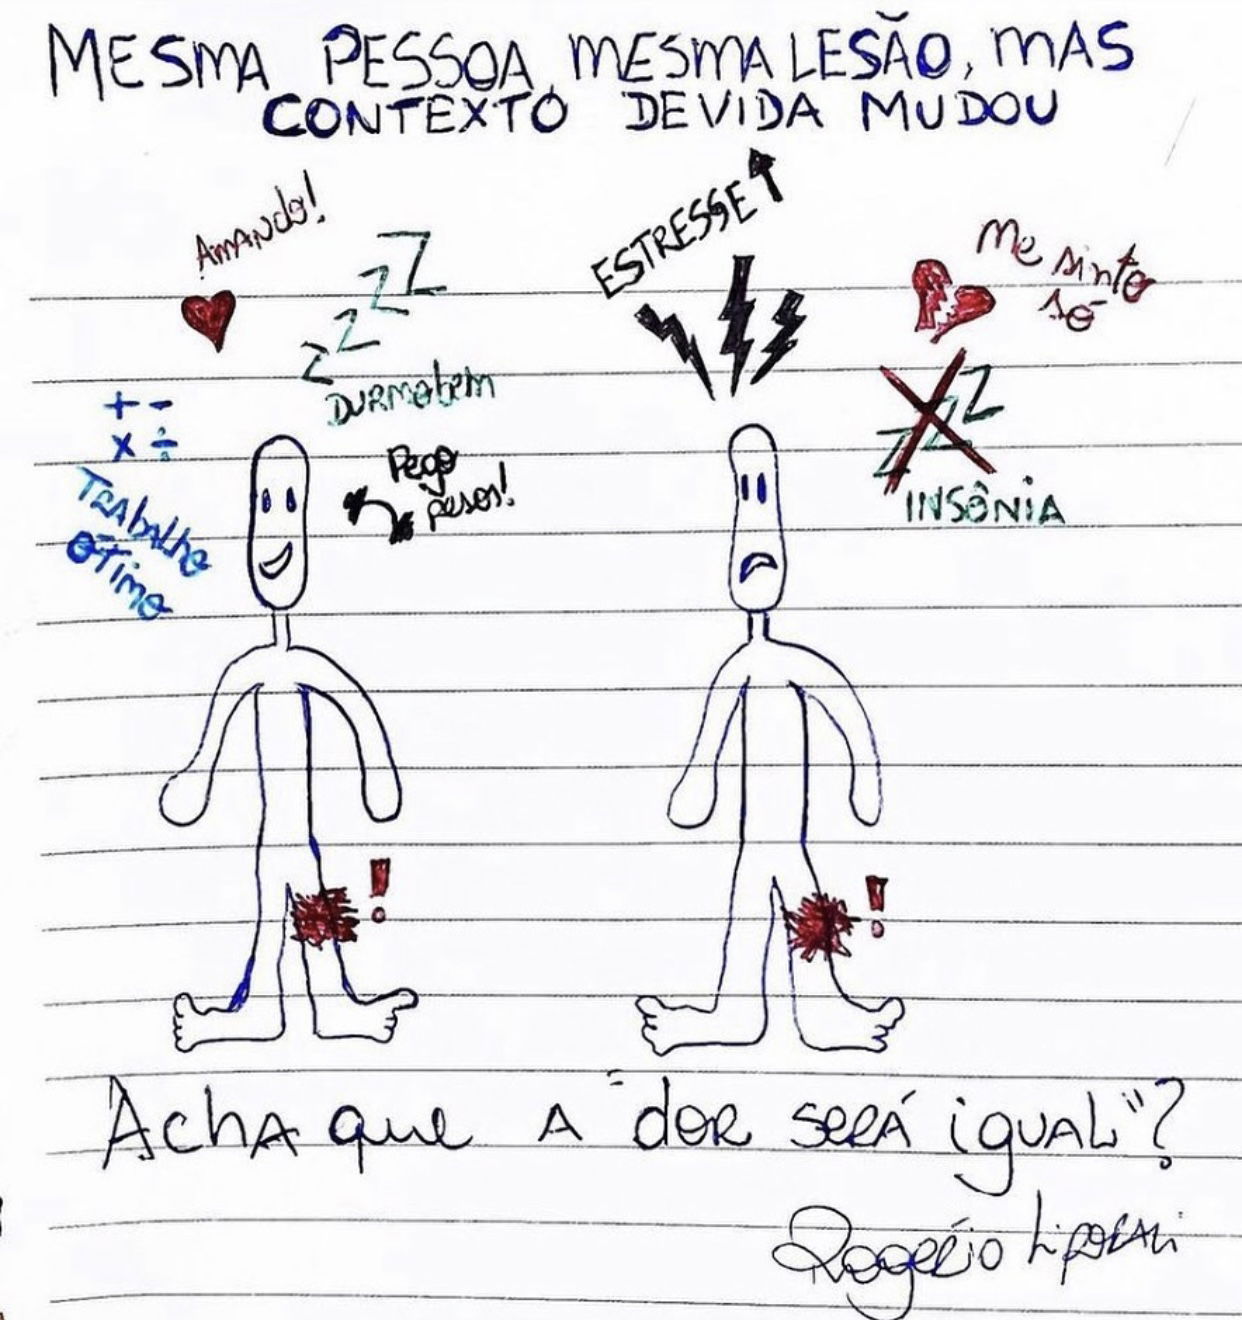 MESMA PESSOA, MESMA LESÃO, MAS
CONTEXTO DE VIDA MUDOU
AMANDO!
Z Z Z Z
DURMO bem
+ -
x ÷
TRABALHO
ÓTIMO
Pego
pesos!
ESTRESSE
Me sinto
só
Z Z Z
INSÔNIA
!
!
Acha que a "dor será igual"?
Rogério